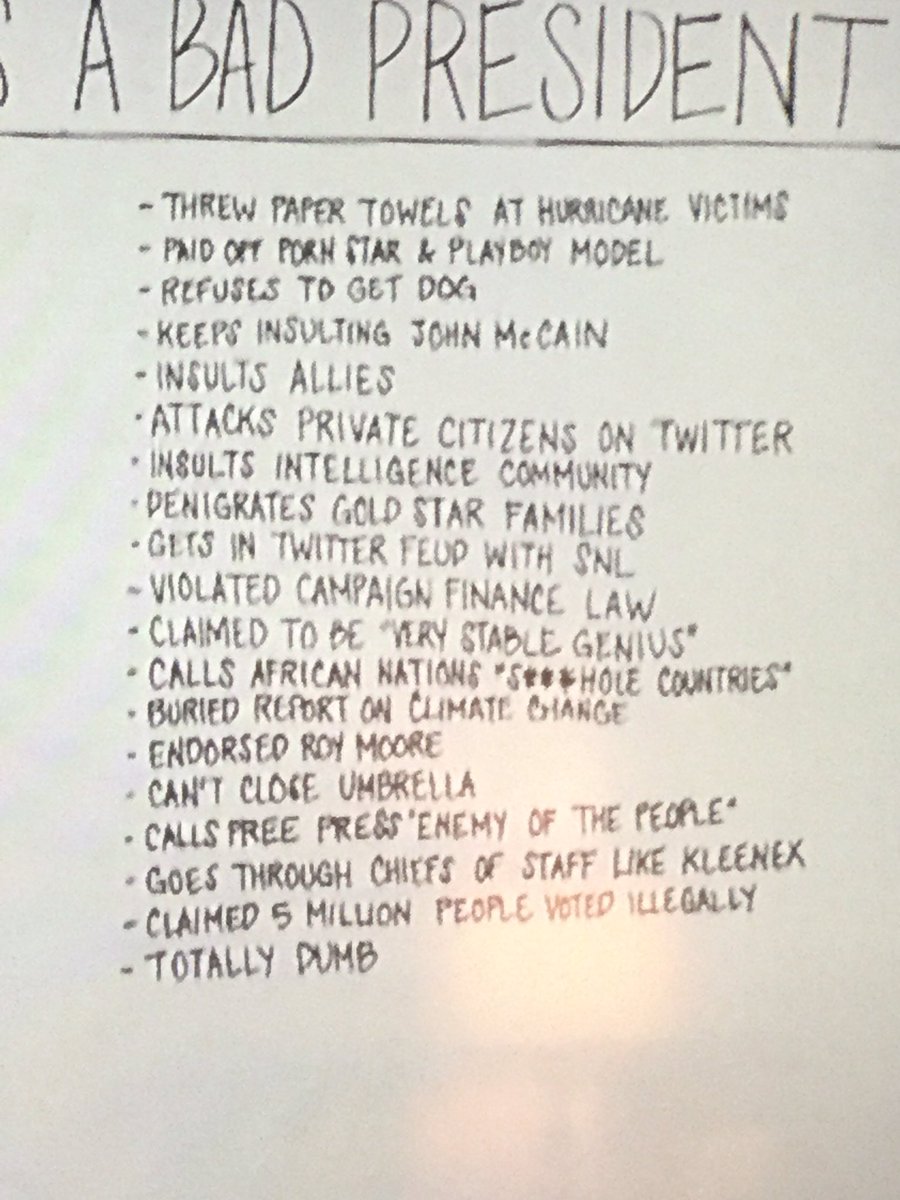 S A BAD PRESIDENT
- THREW PAPER TOWELS AT HURRICANE VICTIMS
- PAID OFF PORN STAR & PLAYBOY MODEL
- REFUSES TO GET DOG
- KEEPS INSULTING JOHN McCAIN
- INSULTS ALLIES
· ATTACKS PRIVATE CITIZENS ON TWITTER
· INSULTS INTELLIGENCE COMMUNITY
· DENIGRATES GOLD STAR FAMILIES
· GETS IN TWITTER FEUD WITH SNL
- VIOLATED CAMPAIGN FINANCE LAW
- CLAIMED TO BE "VERY STABLE GENIUS"
· CALLS AFRICAN NATIONS "S***HOLE COUNTRIES"
- BURIED REPORT ON CLIMATE CHANGE
- ENDORSED ROY MOORE
- CAN'T CLOSE UMBRELLA
· CALLS FREE PRESS "ENEMY OF THE PEOPLE"
- GOES THROUGH CHIEFS OF STAFF LIKE KLEENEX
- CLAIMED 5 MILLION PEOPLE VOTED ILLEGALLY
- TOTALLY DUMB